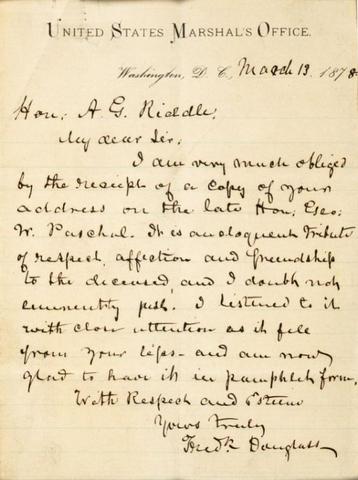 UNITED STATES MARSHAL'S OFFICE.
Washington, D. C., March 13. 1878
Hon; A. G. Riddle,
My dear Sir;
I am very much obliged
by the receipt of a copy of your
address on the late Hon; Geo:
W. Paschal. It is an eloquent tribute
of respect, affection and friendship
to the deceased, and I doubt not
eminently just. I listened to it
with close attention as it fell
from your lips - and am now
glad to have it in pamphlet form.
With Respect and Esteem
Yours truly
Fredk Douglass